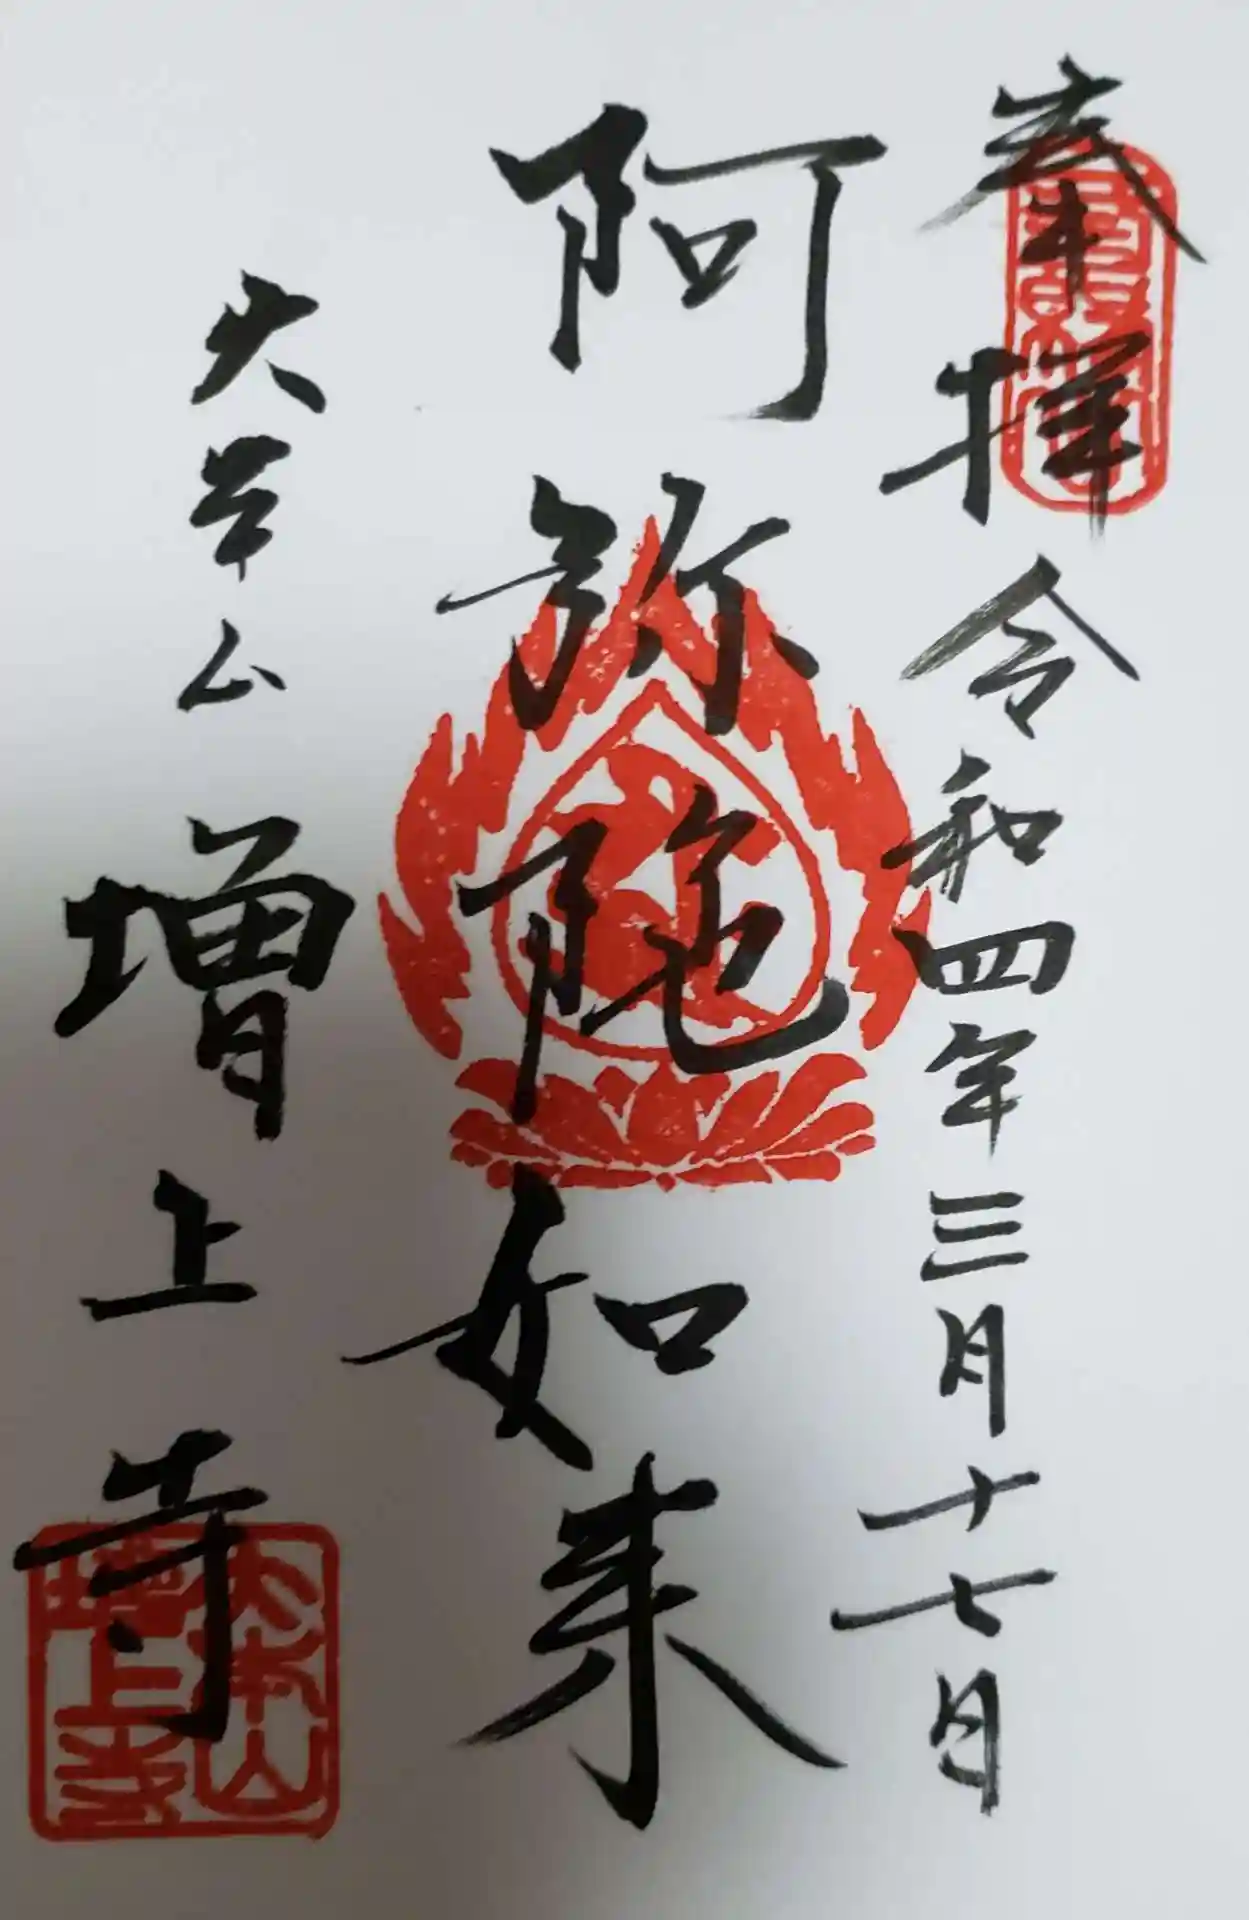 奉拝 令和四年三月十七日
阿弥陀如来
大本山 増上寺
大本山
増上寺